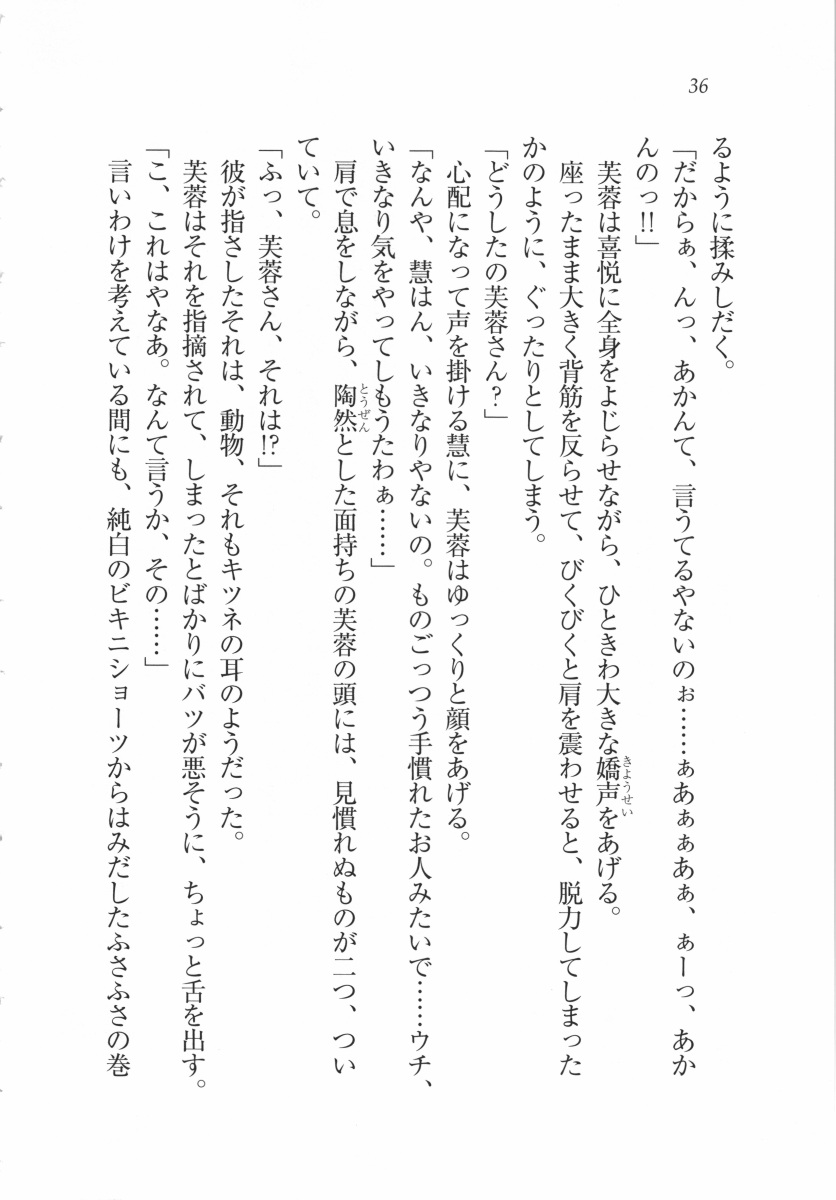 36
るように揉みしだく。
「だからぁ、んっ、あかんて、言うてるやないのぉ……ぁあぁぁあぁ、ぁーっ、あか
んのっ!!」
芙蓉は喜悦に全身をよじらせながら、ひときわ大きな嬌声をあげる。
きようせい
座ったまま大きく背筋を反らせて、びくびくと肩を震わせると、脱力してしまった
かのように、ぐったりとしてしまう。
「どうしたの芙蓉さん?」
心配になって声を掛ける慧に、芙蓉はゆっくりと顔をあげる。
「なんや、慧はん、いきなりやないの。ものごっつう手慣れたお人みたいで……ウチ、
いきなり気をやってしもうたわぁ……」
肩で息をしながら、陶然とした面持ちの芙蓉の頭には、見慣れぬものが二つ、つい
とうぜん
ていて。
「ふっ、芙蓉さん、それは!?」
彼が指さしたそれは、動物、それもキツネの耳のようだった。
芙蓉はそれを指摘されて、しまったとばかりにバツが悪そうに、ちょっと舌を出す。
「こ、これはやなあ。なんて言うか、その……」
言いわけを考えている間にも、純白のビキニショーツからはみだしたふさふさの巻